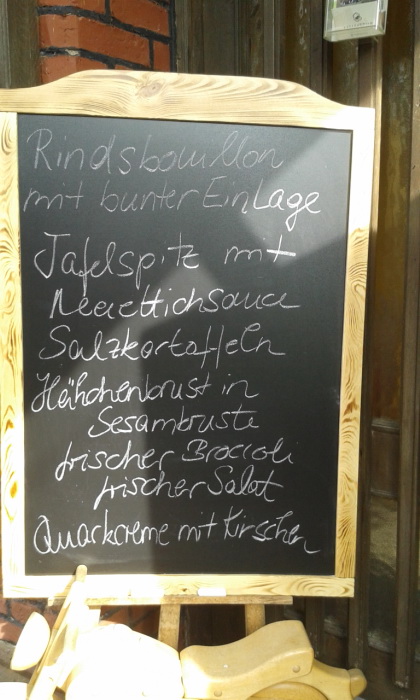 Rindsbouillon
mit bunter Einlage
Tafelspitz mit
Meerettichsauce
Salzkartoffeln
Hähchenbrust in
Sesamkruste
frischer Broccoli
frischer Salat
Quarkcreme mit Kirschen